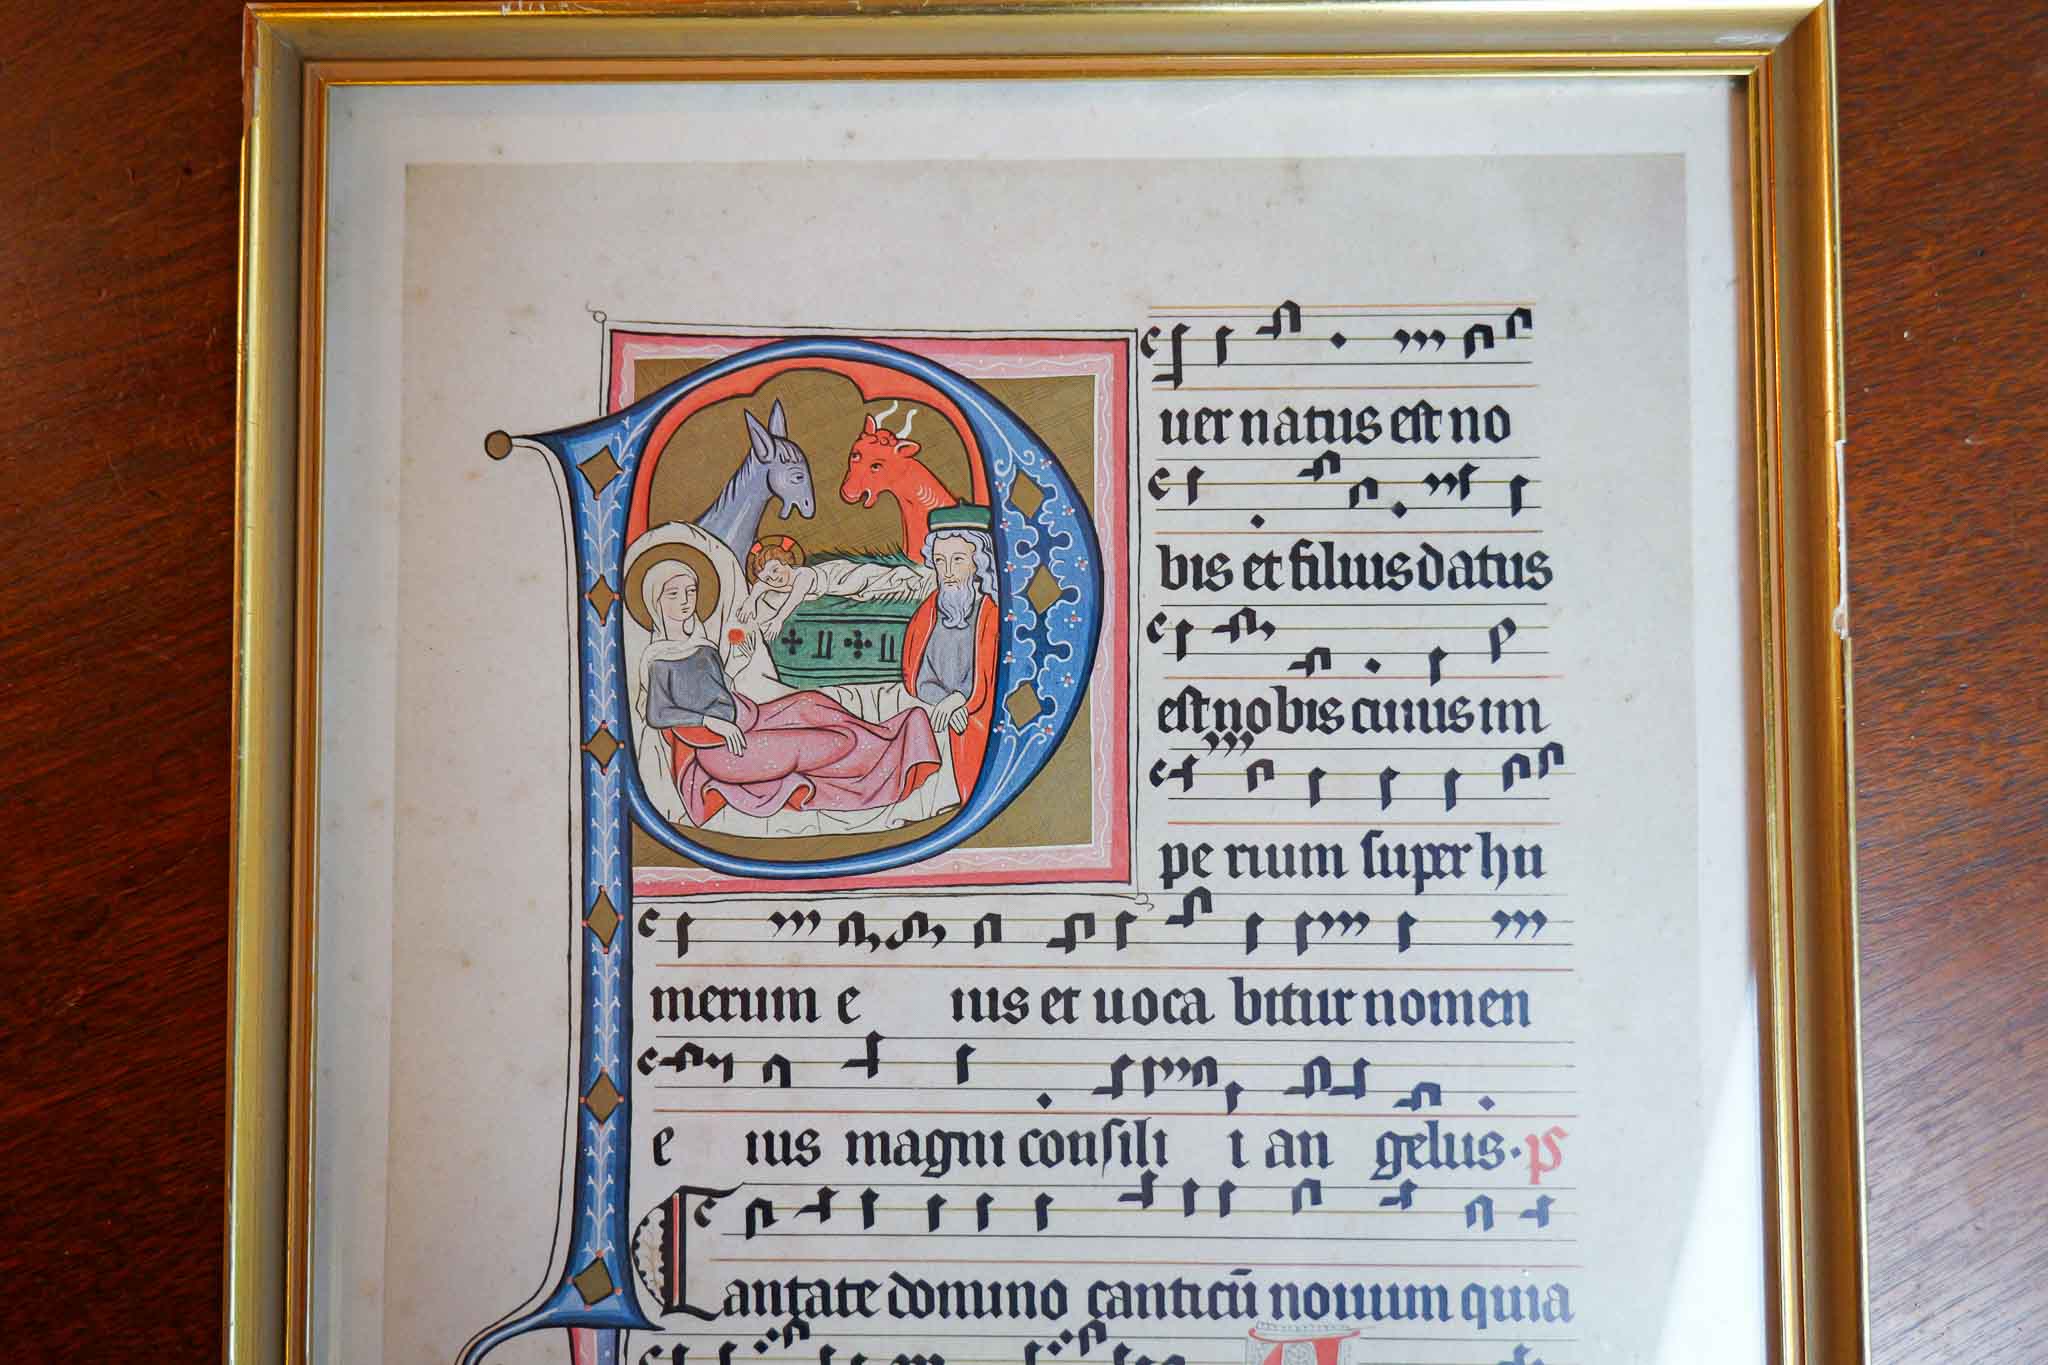 P
uer natus est no
bis et filius datus
est nobis cuius im
pe rium super hu
merum e ius et uoca bitur nomen
e ius magni consili i an gelus. ps
Cantate domino canticū nouum quia